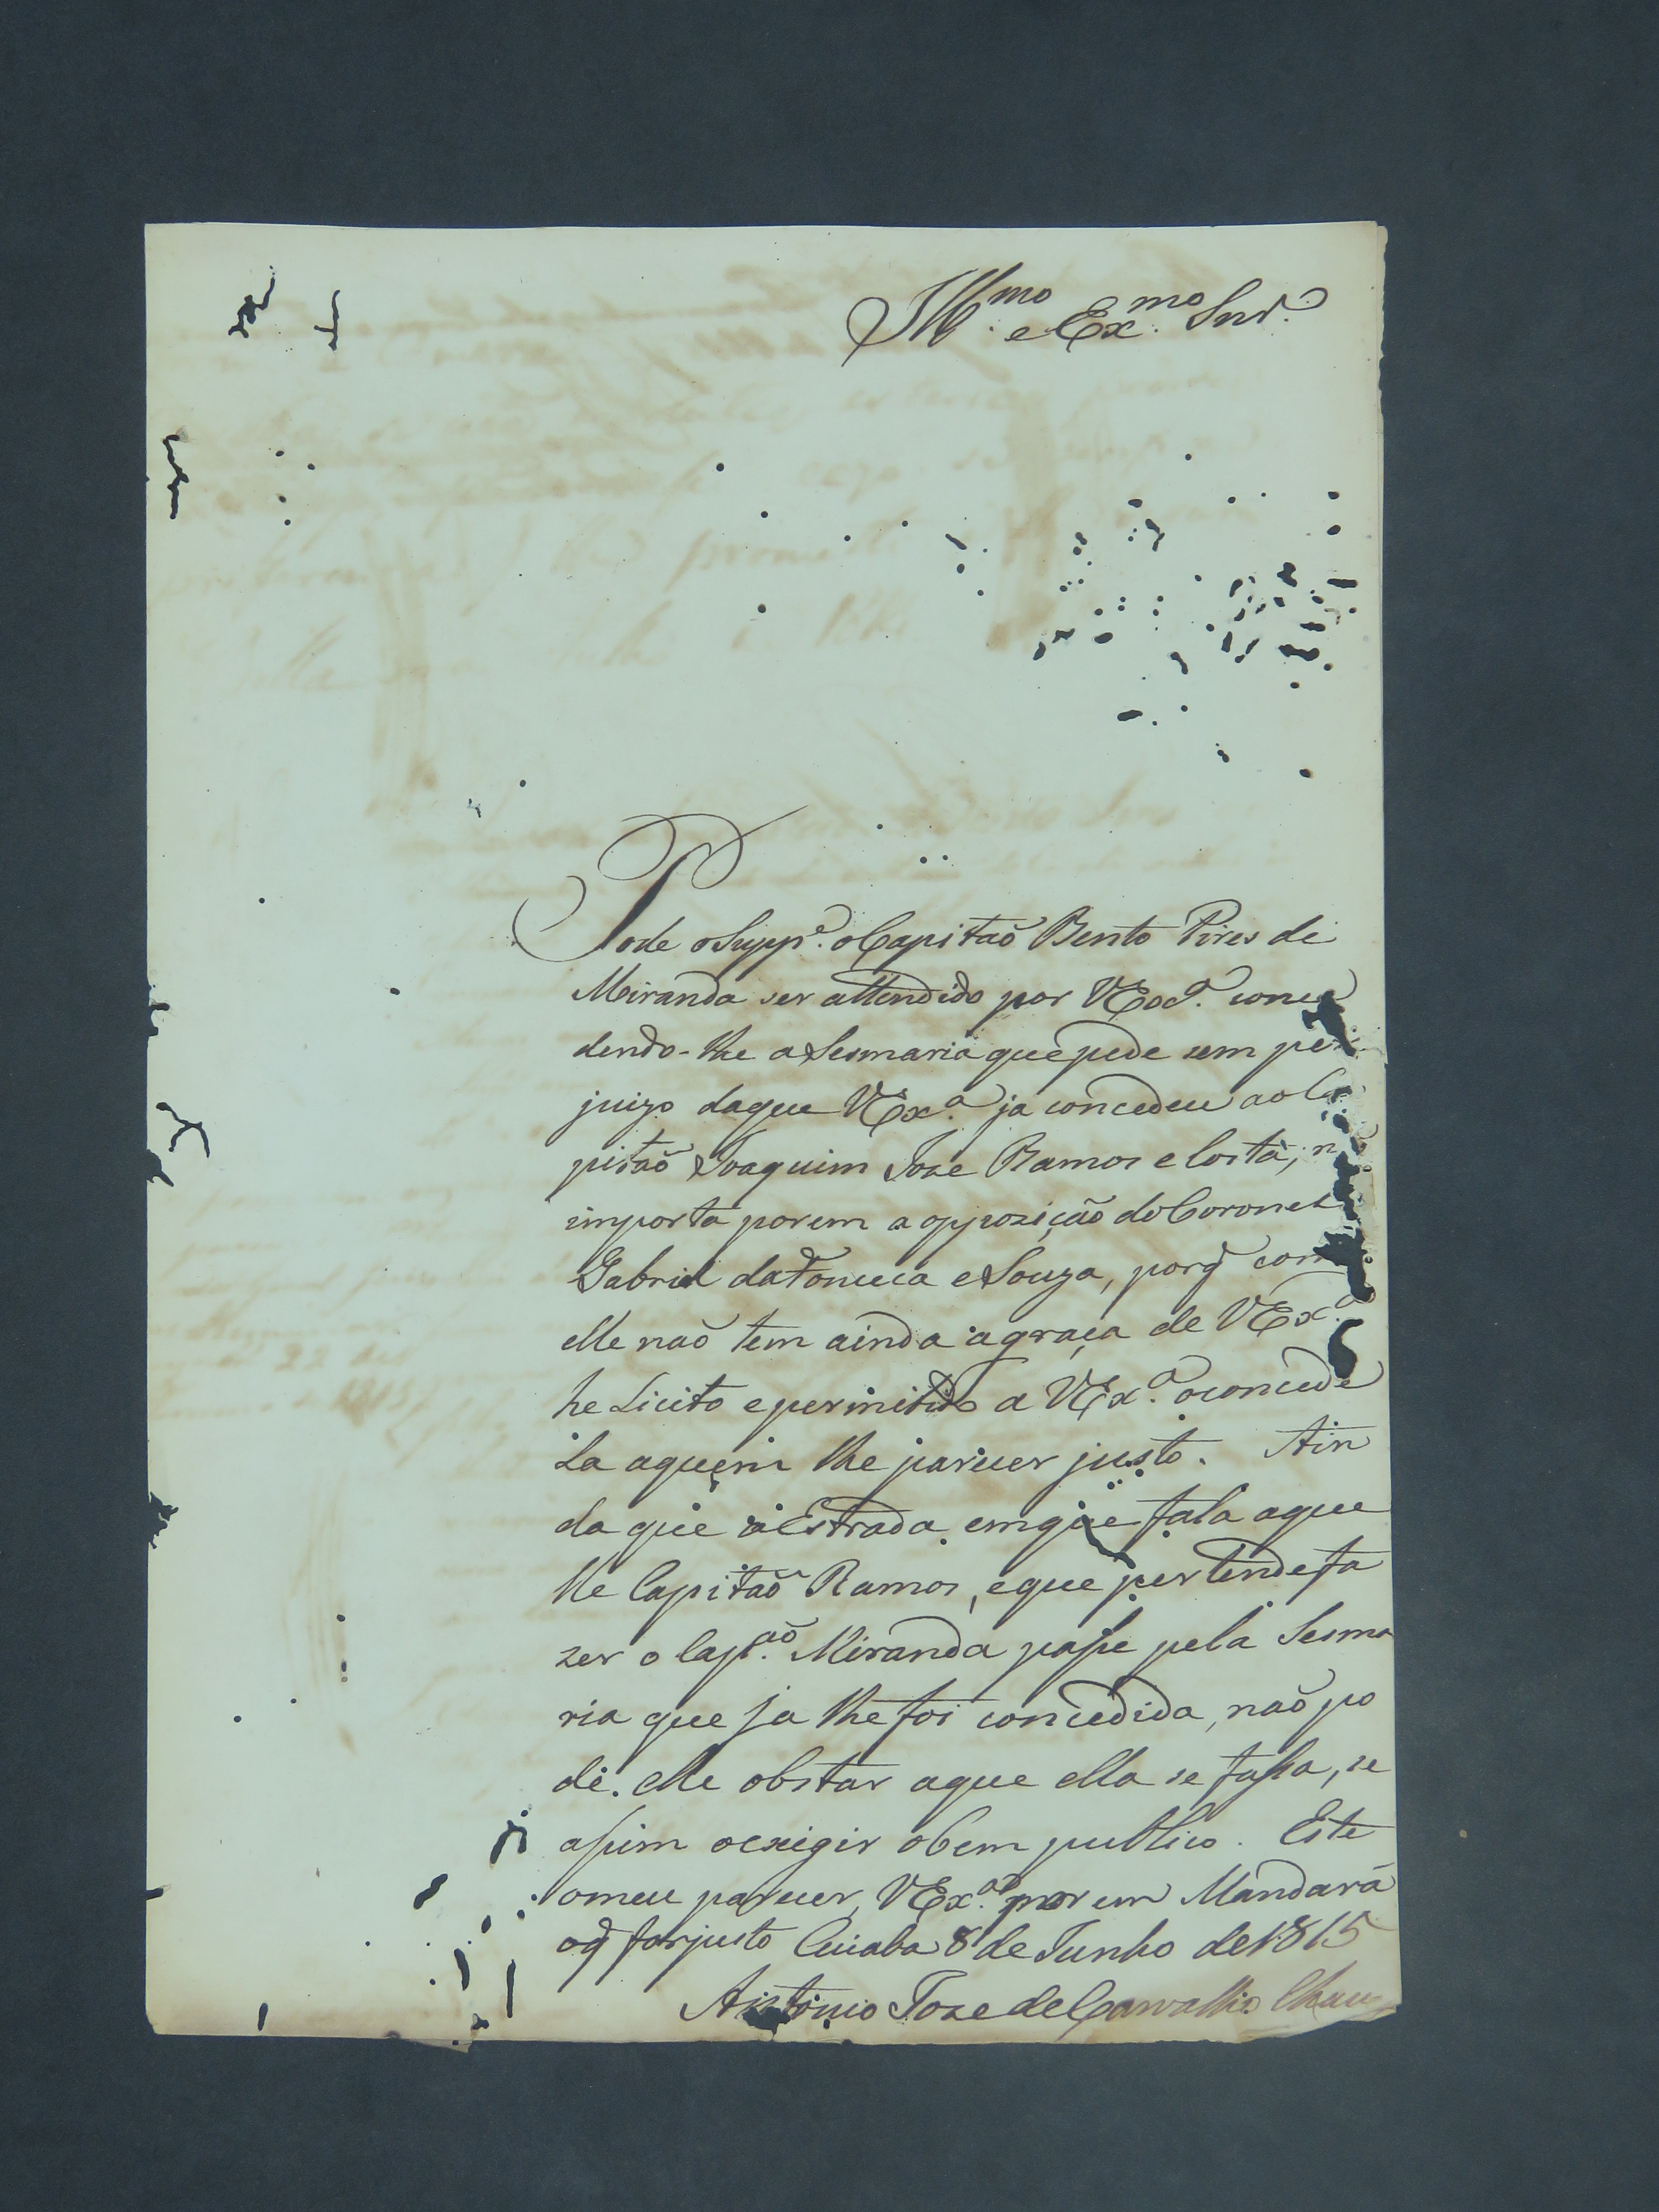 Ill.mo e Ex.mo Snr.
Pode o Supp.e o Capitaõ Bento Pires de
Miranda ser attendido por VEx.ª conce
dendo-lhe a Sesmaria que pede sem per
juizo da que VEx.ª ja concedeu ao Ca
pitaõ Joaquim Joze Ramos e Costa; n
importa porem a oppozição do Coronel
Gabriel da Fonceca e Souza, porq̃ como
elle naõ tem ainda a graça de VEx.ª
he Licito e permitido a VEx.ª o concede
La aquem lhe parecer justo. Ain
da que a Estrada em que fala aque
lle Capitaõ Ramos, e que pertende fa
zer o Cap.aõ Miranda passe pela Sesma
ria que ja lhe foi concedida, naõ po
de elle obstar a que ella se fassa, se
assim o exigir o bem publico. Este
o meu parecer, VEx.ª porem Mandará
o q̃ for justo Cuiaba 8 de Junho de 1815
Antonio Joze de Carvalho Chaves